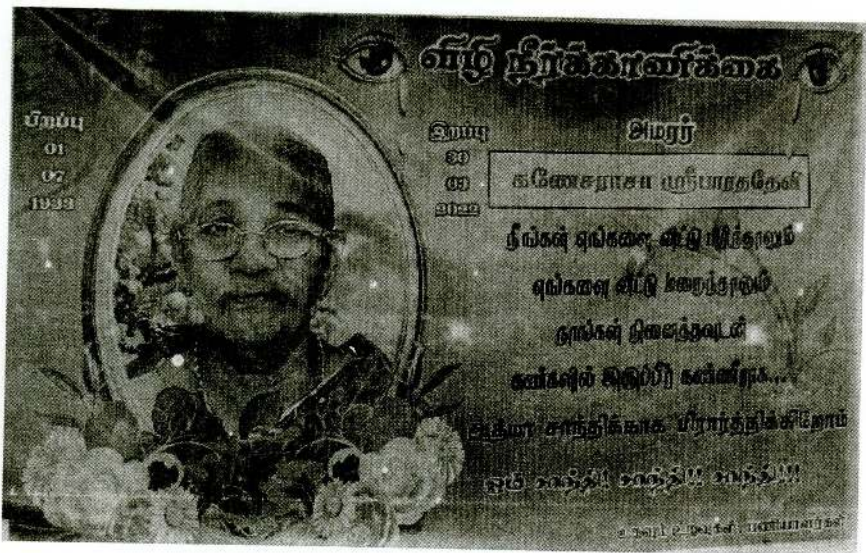 விழி நீர்க்காணிக்கை
பிறப்பு
01
07
1933
இறப்பு
30
03
2022
அமரர்
கணேசராசா ஸ்ரீபாரததேவி
நீங்கள் எங்களை விட்டு பிரிந்தாலும்
எங்களை விட்டு மறைந்தாலும்
நாங்கள் நினைத்தவுடன்
கண்களில் இருப்பீர் கண்ணீராக....
ஆத்மா சாந்திக்காக பிரார்த்திக்கிறோம்
ஓம் சாந்தி! சாந்தி!! சாந்தி!!!
பணியாளர்கள்